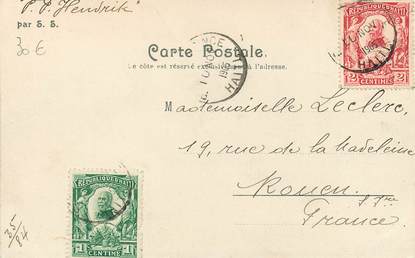 P. P. Hendrik
par S. S.
30 €
Carte Postale.
Le côté est réservé exclusivement à l'adresse.
HAITI
REPUBLIQUE D'HAITI
HAITI
2 CENTIMES 2
Mademoiselle Leclerc,
19, rue de la Madeleine
Rouen.
France.
REPUBLIQUE D'HAITI
1 CENTIME 1
35/84